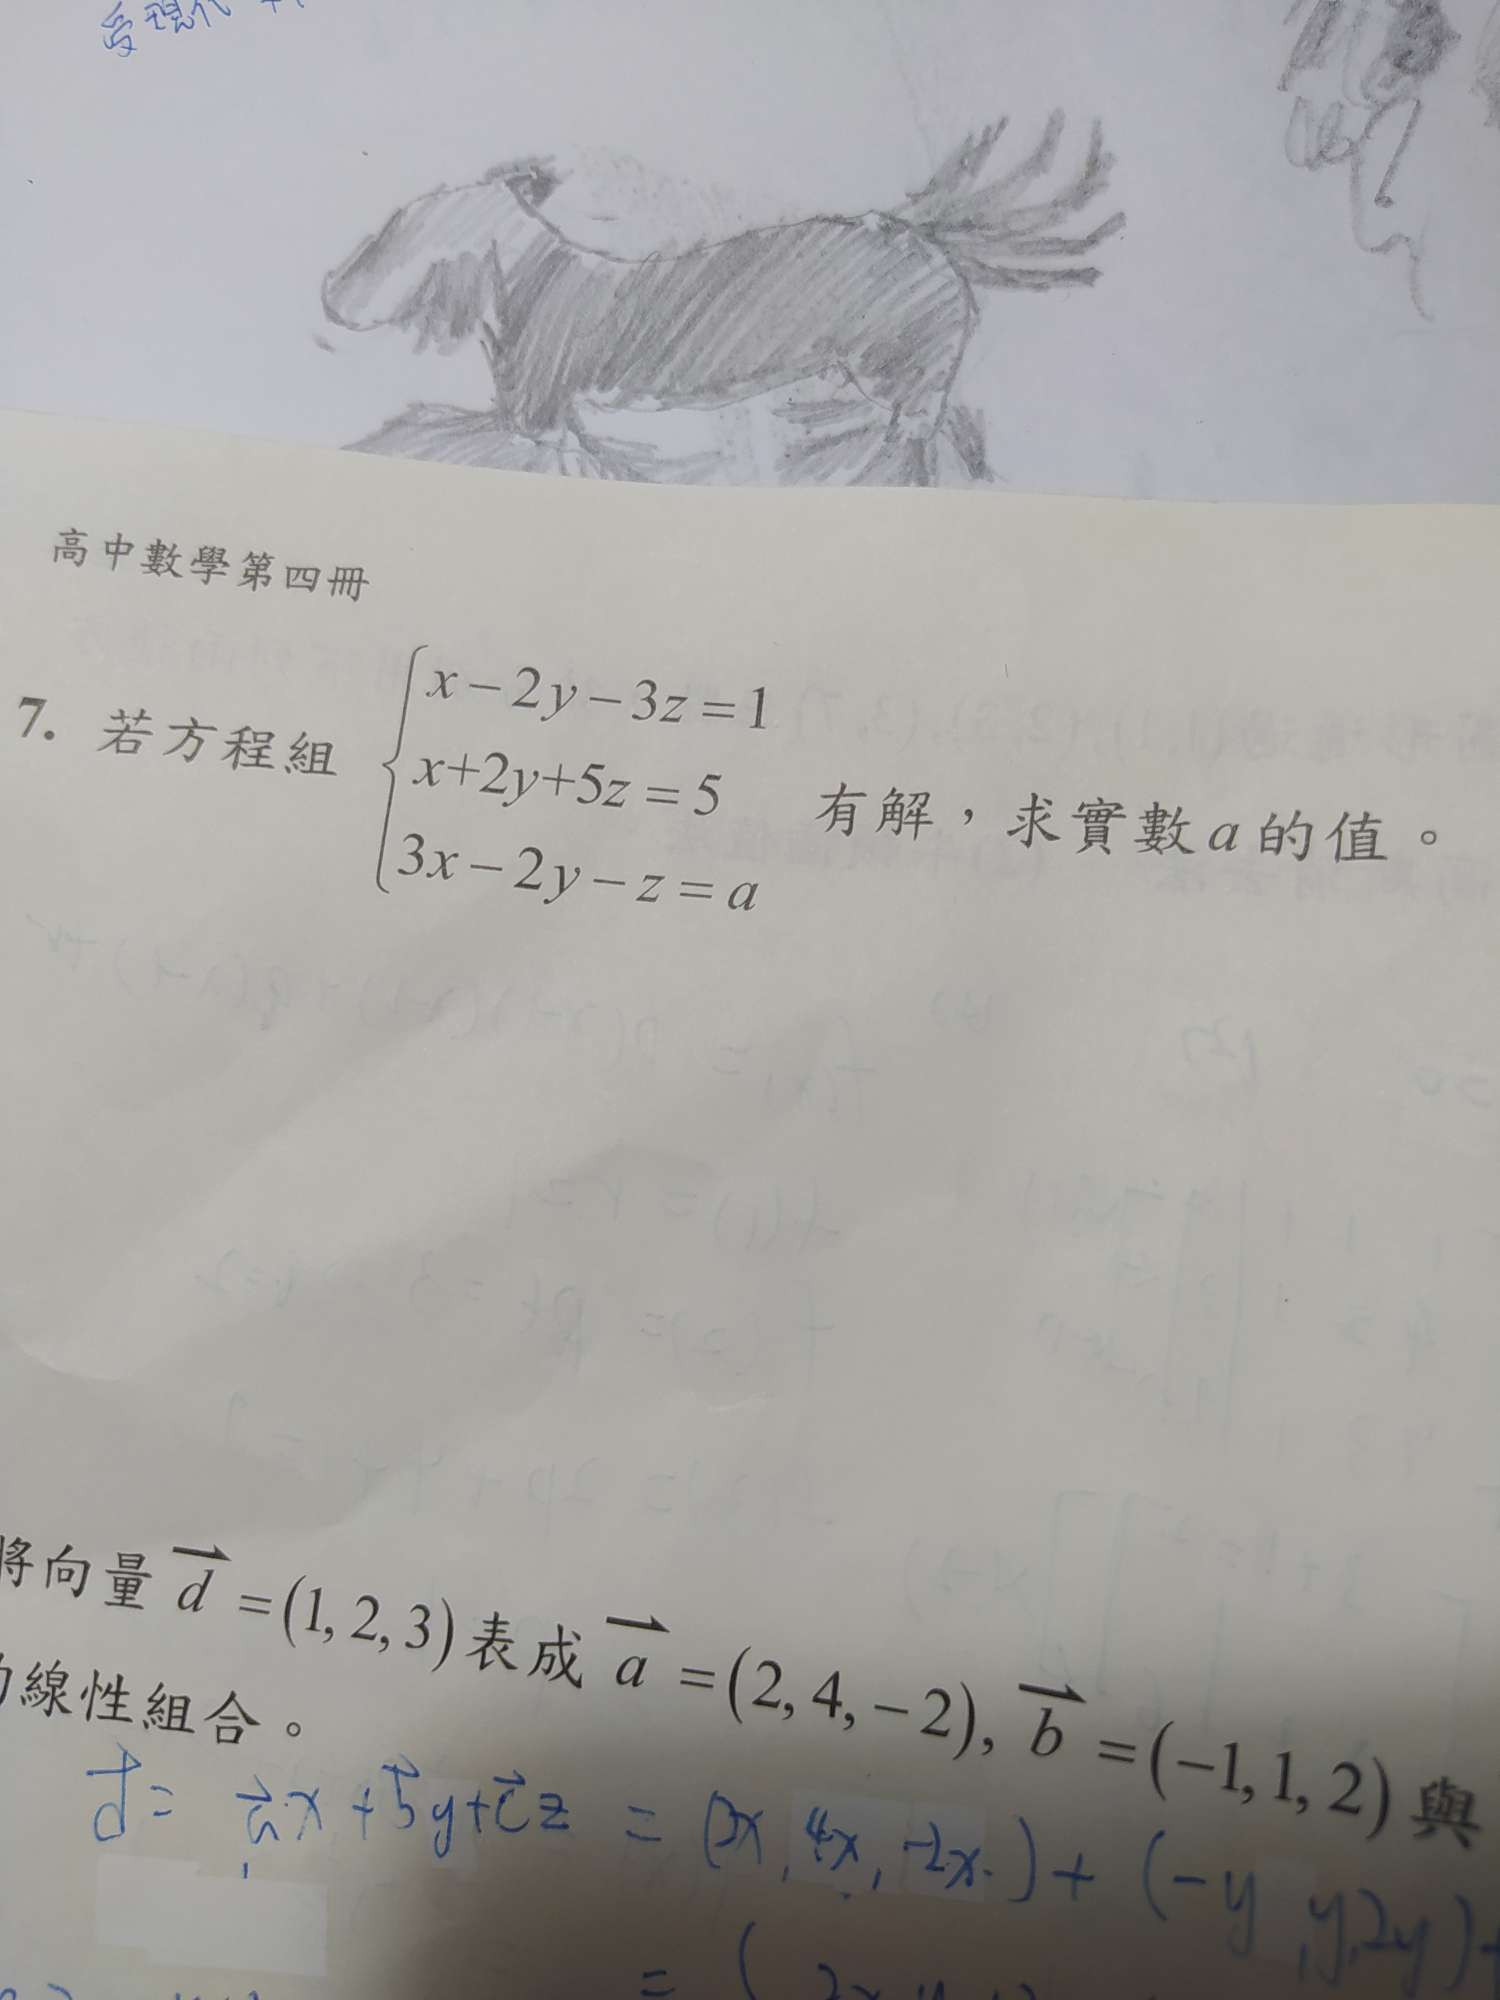 受現代
高中數學第四冊
x-2y-3z=1
7. 若方程組 x+2y+5z=5 有解，求實數a的值。
3x-2y-z=a
將向量 d=(1,2,3)表成 a=(2,4,-2), b=(-1,1,2)與
的線性組合。
d= ax+by+cz = (2x, 4x, -2x)+(-y, y, 2y)+
= (2x